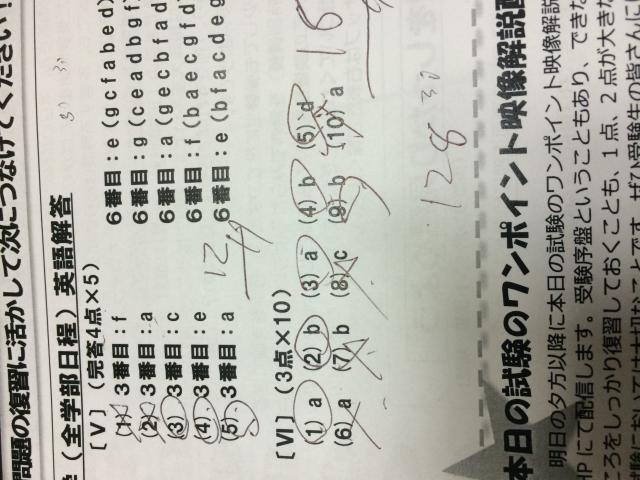 問題の復習に活かして次につなげてください!
(全学部日程) 英語解答
[Ⅴ] (完答4点×5)
(1) 3番目:f 6番目:e (gcfabed)
(2) 3番目:a 6番目:g (ceadbgf)
(3) 3番目:c 6番目:a (gecbfad
(4) 3番目:e 6番目:f (baecgfd)
(5) 3番目:a 6番目:e (bfacdeg
12
49
[Ⅵ] (3点×10)
(1) a (2) b (3) a (4) b (5) d
(6) a (7) b (8) c (9) b (10) a
15
128
本日の試験のワンポイント映像解説
明日の夕方以降に本日の試験のワンポイント映像解説
HPにて配信します。受験序盤ということもあり、できな
ころをしっかり復習しておくことも、1点、2点が大きな
大切なことです。ぜひ受験生の皆さんに